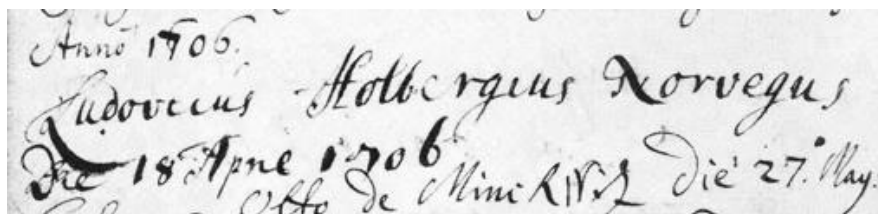 Anno 1706.
Ludovicus Holbergius Norvegus
Die 18 Aprie 1706
Otto de die 27. May.